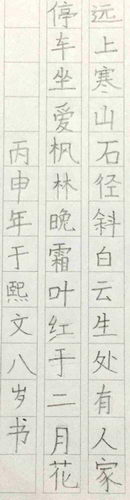 远上寒山石径斜白云生处有人家
停车坐爱枫林晚霜叶红于二月花
丙申年于熙文八岁书